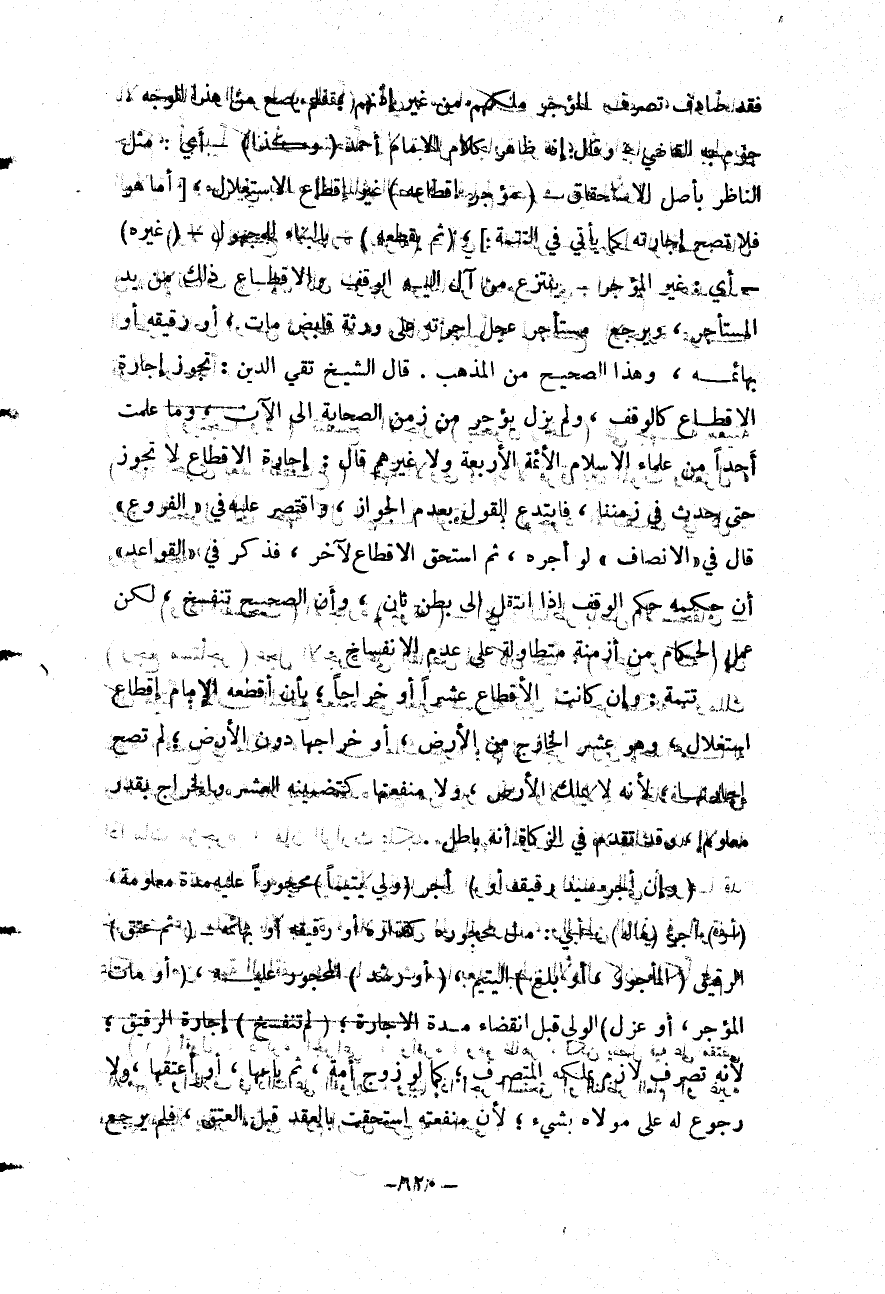 فقد صادف تصرف المؤجر ملكهم من غير إذنهم فلم يصح من هذا الوجه
جزم به القاضي ، وقال: إنه ظاهر كلام الامام أحمد ( وكذا ) – أي : مثل
الناظر بأصل الاستحقاق – ( مؤجر إقطاعه ) غير إقطاع الاستغلال ؛ [ أما هو
فلا تصح إجارته كما يأتي في التتمة : ] ؛ ( ثم يقطعه ) – بالبناء للمجهول – ( غيره )
– أي : غير المؤجر – ينتزع من آل اليه الوقف والاقطاع ذلك من يد
المستأجر ، ويرجع مستأجر عجل اجرته على ورثة قابض مات ، أو رقيقه أو
بهائمه ، وهذا الصحيح من المذهب . قال الشيخ تقي الدين : تجوز إجارة
الاقطاع كالوقف ، ولم يزل يؤجر من زمن الصحابة الى الآن ، وما علمت
أحداً من علماء الاسلام الأئمة الأربعة ولا غيرهم قال : إجارة الاقطاع لا تجوز
حتى حدث في زمننا ، فابتدع القول بعدم الجواز ، واقتصر عليه في « الفروع »
قال في « الانصاف » لو أجره ، ثم استحق الاقطاع لآخر ، فذكر في « القواعد »
أن حكمه حكم الوقف إذا انتقل الى بطن ثان ، وأن الصحيح تنفسخ ، لكن
عمل الحكام من أزمنة متطاولة على عدم الانفساخ
تتمة : وإن كانت الأقطاع عشراً أو خراجاً ؛ بأن أقطعه الإمام إقطاع
استغلال ، وهو عشر الخارج من الأرض ، أو خراجها دون الأرض ؛ لم تصح
إجارتها ؛ لأنه لا يملك الأرض ، ولا منفعتها كتضمينه العشر والخراج بقدر
معلوم ، وقد تقدم في الزكاة أنه باطل .
( وإن أجر سيد رقيقه أو ) أجر ( ولي يتيماً ) محجوراً عليه مدة معلومة ،
( أو ) أجر ( ماله ) أي : مال محجوره كداره أو رقيقه أو بهائمه ( ثم عتق )
الرقيق ( المأجور ، أو بلغ ) اليتيم ، ( أو رشد ) المحجور عليه ، ( أو مات
المؤجر ، أو عزل ) الولي قبل انقضاء مدة الاجارة ؛ ( لم تنفسخ ) إجارة الرقيق ؛
لأنه تصرف لازم يملكه المتصرف ؛ كما لو زوج أمة ، ثم باعها ، أو أعتقها ، ولا
رجوع له على مولاه بشيء ؛ لأن منفعته استحقت بالعقد قبل العتق ، فلم يرجع